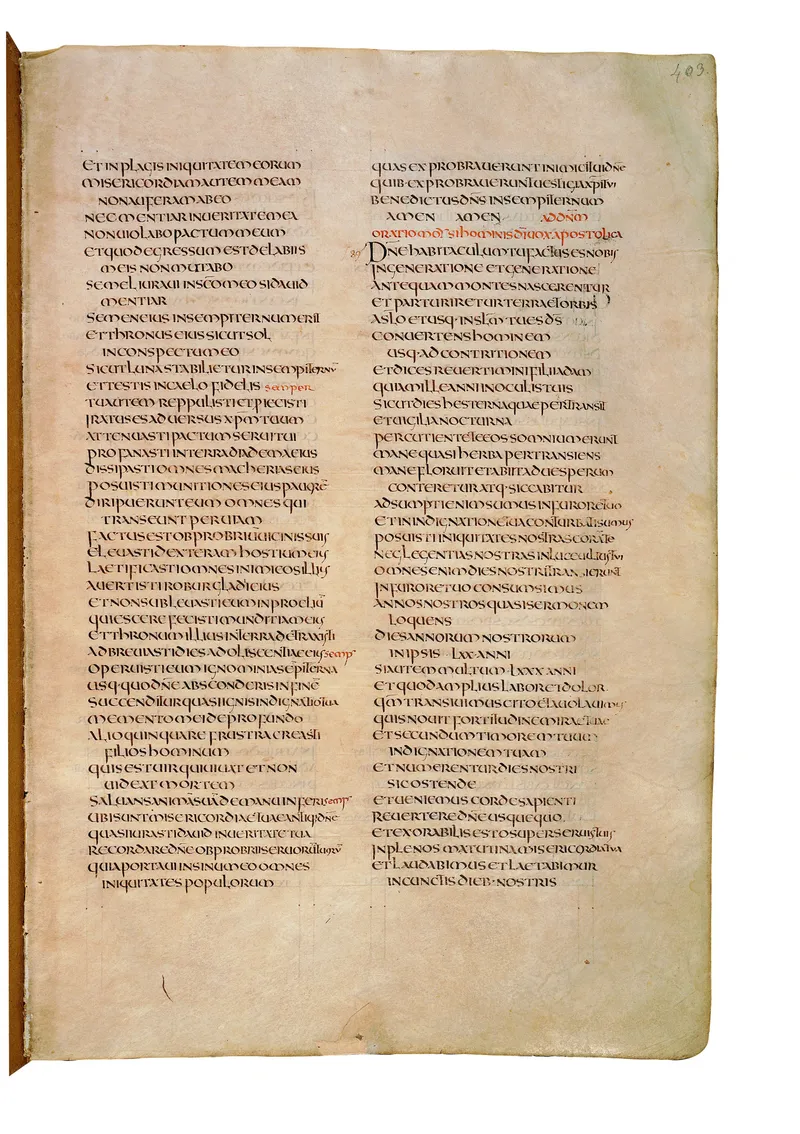 403.
ET IN PLAGIS INIQUITATEM EORUM
MISERICORDIAM AUTEM MEAM
NON AUFERAM AB EO
NEC MENTIAR IN UERITATE MEA
NON UIOLABO PACTUM MEUM
ET QUOD EGRESSUM EST DE LABIIS
MEIS NON MUTABO
SEMEL IURAUI IN SCO MEO SI DAUID
MENTIAR
SEMEN EIUS IN SEMPITERNUM ERIT
ET THRONUS EIUS SICUT SOL
IN CONSPECTU MEO
SICUT LUNA STABILIETUR IN SEMPITERNŪ
ET TESTIS IN CAELO FIDELIS SEMPER
TU AUTEM REPPULISTI ET PIECISTI
IRATUS ES ADUERSUS XPM TUUM
ATTENUASTI PACTUM SERUI TUI
PROFANASTI IN TERRA DIADEMA EIUS
DISSIPASTI OMNES MACHERIAS EIUS
POSUISTI MUNITIONES EIUS PAUORĒ
DIRIPUERUNT EUM OMNES QUI
TRANSEUNT PER UIAM
FACTUS EST OBPROBRIŪ UICINIS SUIS
ELEUASTI DEXTERAM HOSTIUM EIUS
LAETIFICASTI OMNES INIMICOS ILLIUS
AUERTISTI ROBUR GLADII EIUS
ET NON SUBLEUASTI EUM IN PROELIŪ
QUIESCERE FECISTI MUNDITIAM EIUS
ET THRONUM ILLIUS IN TERRA DETRAXISTI
ADBREUIASTI DIES ADOLISCENTIAE EIUS SEMP
OPERUISTI EUM IGNOMINIA SEPITERNA
USQ· QUO DÑE ABSCONDERIS IN FINĒ
SUCCENDITUR QUASI IGNIS INDIGNATIO TUA
MEMENTO MEI DE PROFUNDO
ALIOQUIN QUARE FRUSTRA CREASTI
FILIOS HOMINUM
QUIS EST UIR QUI UIUAT ET NON
UIDEAT MORTEM
SALUANS ANIMĀ SUĀ DE MANU INFERI SEMP
UBI SUNT MISERICORDIAE TUAE ANTIQ· DÑE
QUAS IURASTI DAUID IN UERITATE TUA
RECORDARE DÑE OBPROBRII SERUORŪ TUORŪ
QUIA PORTAUI IN SINU MEO OMNES
INIQUITATES POPULORUM
QUAS EXPROBRAUERUNT INIMICI TUI DÑE
QUIB· EXPROBRAUERUNT UESTIGIA XPI TUI
BENEDICTUS DÑS IN SEMPITERNUM
AMEN AMEN AD DÑM
ORATIO MOSI HOMINIS DI UOX APOSTOLICA
89 DÑE HABITACULUM TU FACTUS ES NOBIS
IN GENERATIONE ET GENERATIONE
ANTEQUAM MONTES NASCERENTUR
ET PARTURIRETUR TERRA ET ORBIS
A SLO ET USQ· IN SLM TU ES DS
CONUERTENS HOMINEM
USQ· AD CONTRITIONEM
ET DICES REUERTIMINI FILII ADAM
QUIA MILLE ANNI IN OCULIS TUIS
SICUT DIES HESTERNA QUAE PERTRANSIIT
ET UIGILIA NOCTURNA
PERCUTIENTE TE EOS SOMNIUM ERUNT
MANE QUASI HERBA PERTRANSIENS
MANE FLORUIT ET ABIIT AD UESPERUM
CONTERETUR ATQ· SICCABITUR
ADSUMPTI ENIM SUMUS IN FURORE TUO
ET IN INDIGNATIONE TUA CONTURBATI SUMUS
POSUISTI INIQUITATES NOSTRAS CORĀ TE
NEGLEGENTIAS NOSTRAS IN LUCE UULTUS TUI
OMNES ENIM DIES NOSTRI TRANSIERUNT
IN FURORE TUO CONSUMSIMUS
ANNOS NOSTROS QUASI SERMONEM
LOQUENS
DIES ANNORUM NOSTRORUM
IN IPSIS LXX ANNI
SI AUTEM MULTUM LXXX ANNI
ET QUOD AMPLIUS LABOR ET DOLOR
QM TRANSIUIMUS CITO ET AUOLAUIMUS
QUIS NOUIT FORTITUDINEM IRAE TUAE
ET SECUNDUM TIMOREM TUUM
INDIGNATIONEM TUAM
ET NUMERENTUR DIES NOSTRI
SIC OSTENDE
ET UENIEMUS CORDE SAPIENTI
REUERTERE DÑE USQUEQUO
ET EXORABILIS ESTO SUPER SERUIS TUIS
IN PLE NOS MATUTINA MISERICORDIA TUA
ET LAUDABIMUS ET LAETABIMUR
IN CUNCTIS DIEB· NOSTRIS